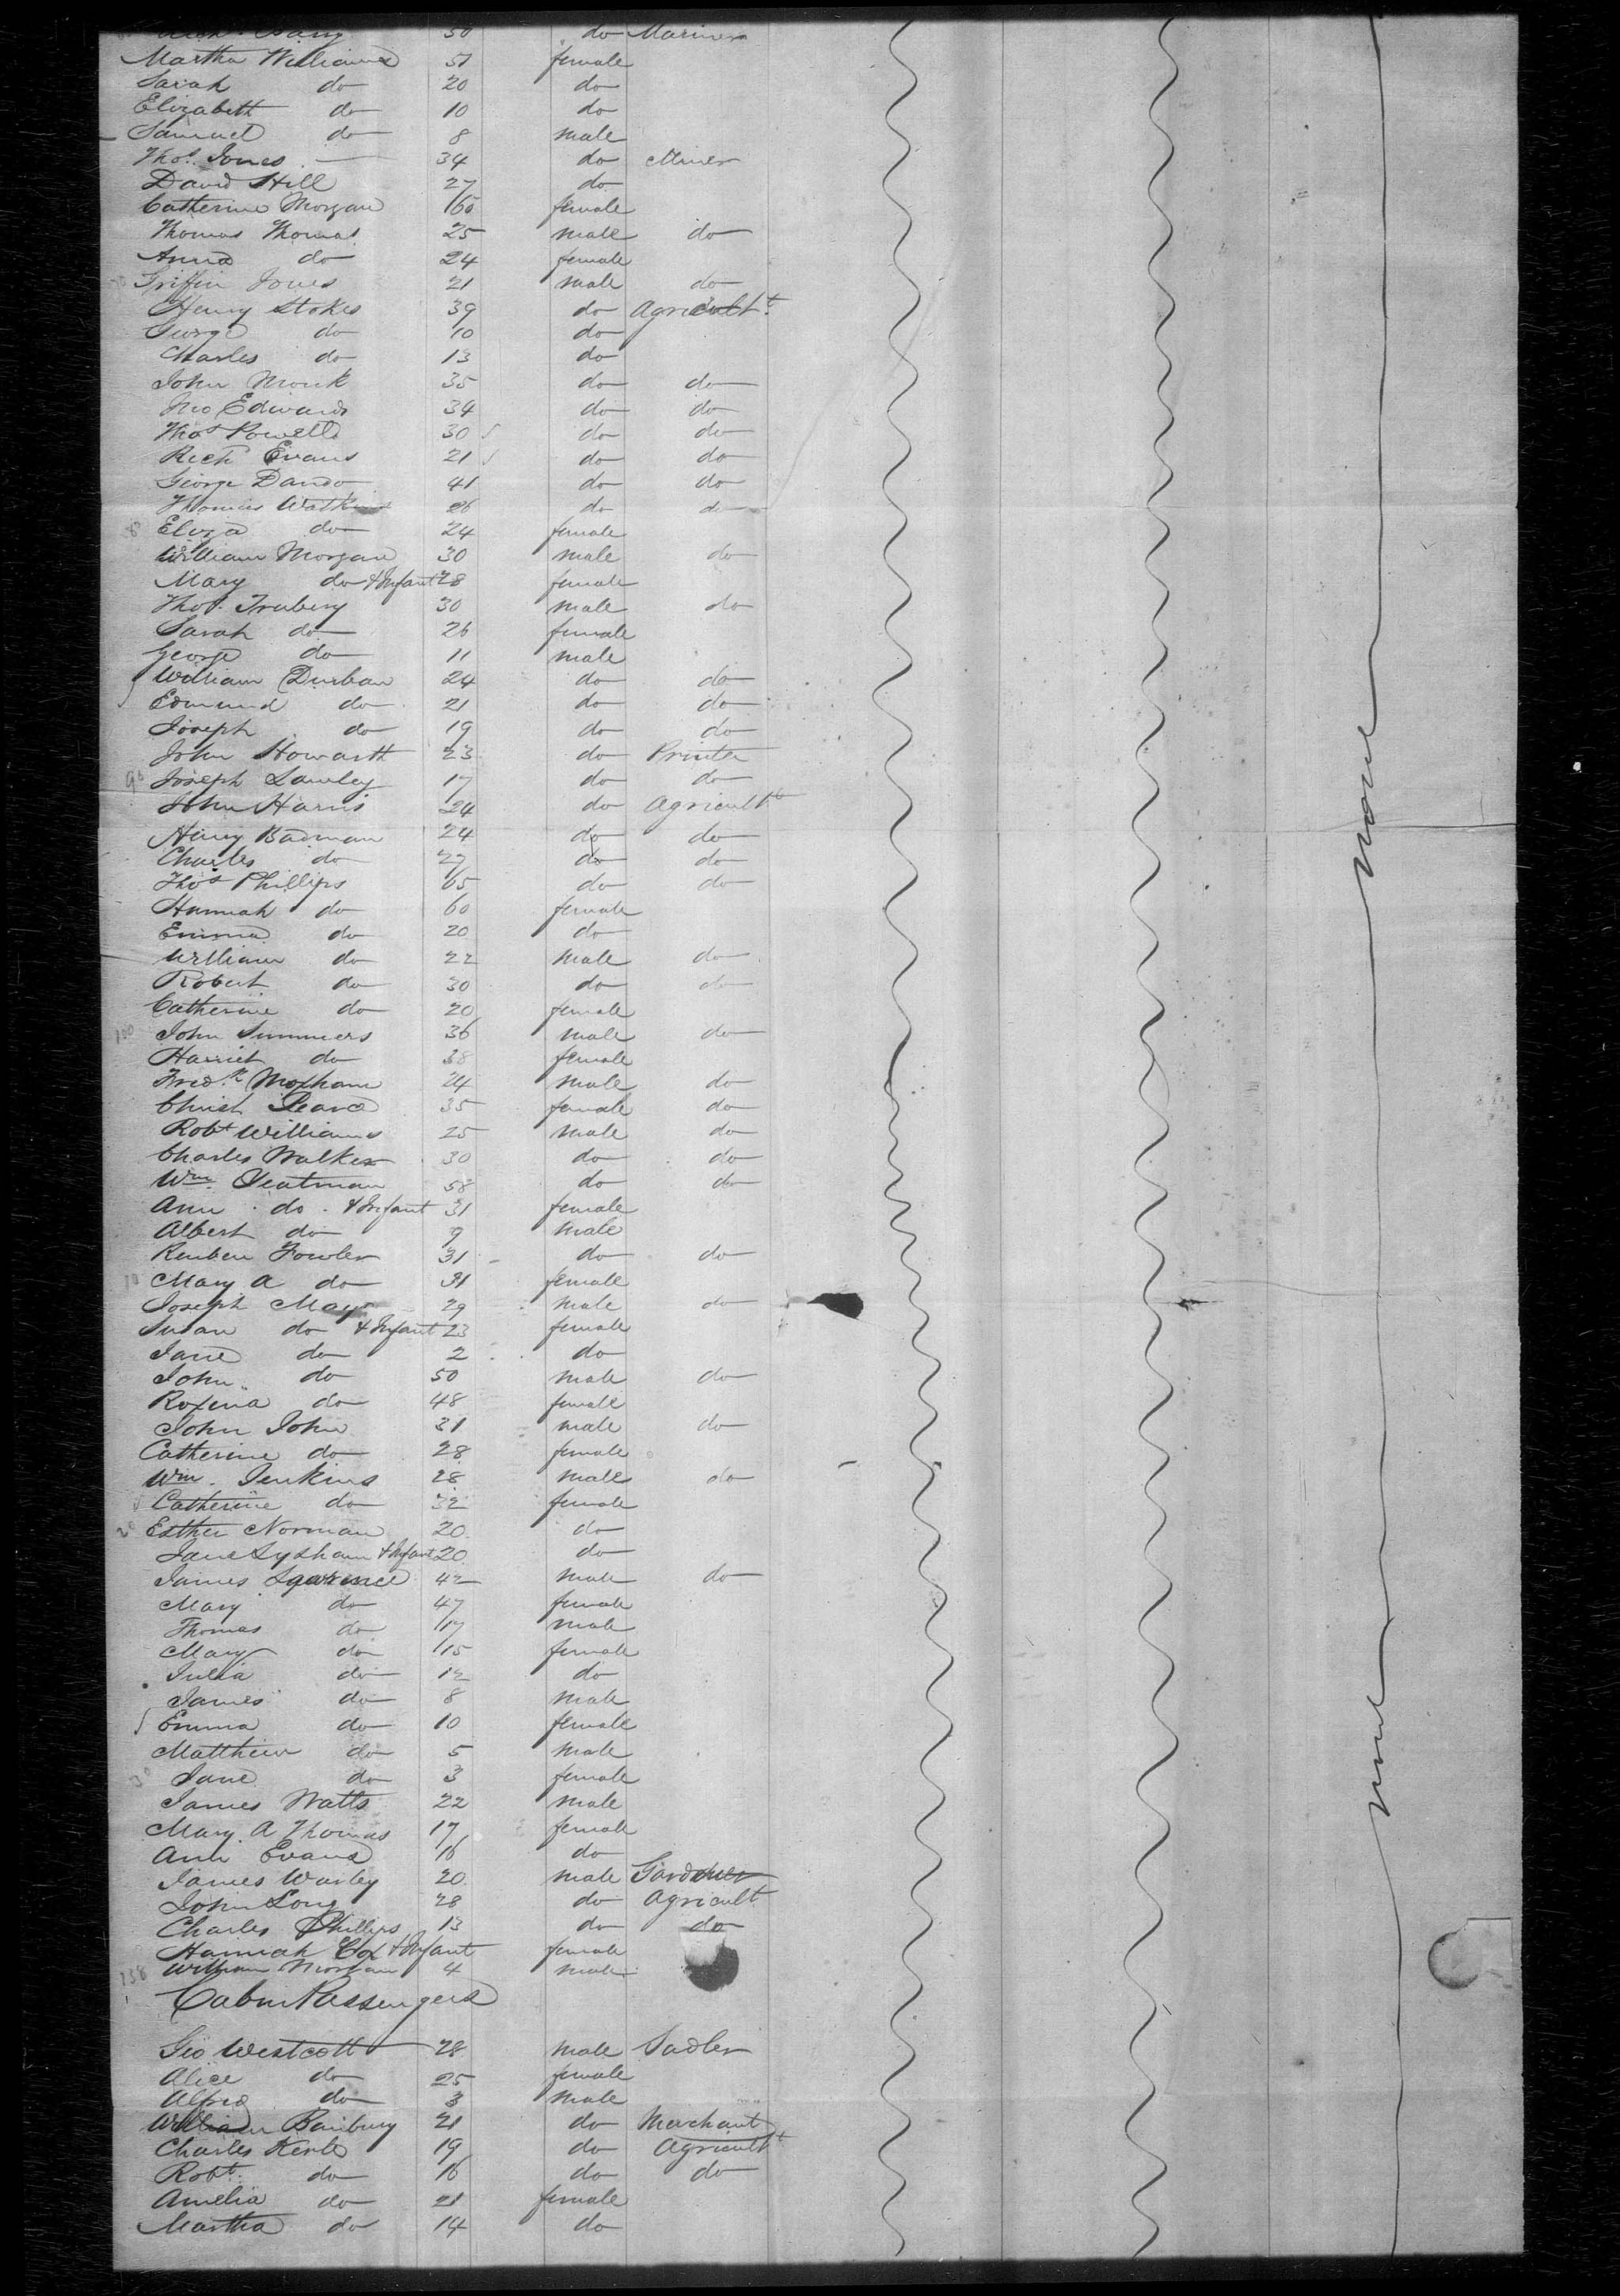 50 do Mariner
Martha Williams 51 female
Sarah do 20 do
Elizabeth do 10 do
Samuel do 8 male
Thos. Jones 34 do Miner
David Hill 27 do
Catherine Morgan 60 female
Thomas Thomas 25 male do
Anna do 24 female
Griffin Jones 21 male do
Henry Stokes 39 do Agricult.t
George do 10 do
Charles do 13 do
John Monk 35 do do
Jno Edwards 34 do do
Thos Powell 30 do do
Rich Evans 21 do do
George Dando 41 do do
Thomas Watkins 26 do do
Eliza do 24 female
William Morgan 30 male do
Mary do & Infant 28 female
Thos. 30 male do
Sarah do 26 female
George do 11 male
William Durban 24 do do
Edmund do 21 do do
Joseph do 19 do do
John Howarth 23 do Printer
90 Joseph 17 do do
John Harris 24 do Agricult.t
Henry Badman 24 do do
Charles do 27 do do
Thos Phillips 65 do do
Hannah do 60 female
Emma do 20 do
William do 22 male do
Robert do 30 do do
Catherine do 20 female
100 John Summers 36 male do
Harriet do 38 female
Fredk Moxham 24 male do
Christ Pearce 35 female do
Robt Williams 25 male do
Charles Walker 30 do do
Wm. Yeatman 58 do do
Ann do & Infant 31 female
Albert do 9 male
Reuben Fowler 31 do do
10 Mary A do 31 female
Joseph May 29 male do
Susan do & Infant 23 female
Jane do 2 do
John do 50 male do
Roxena do 48 female
John John 31 male do
Catherine do 28 female
Wm. Jenkins 28 male do
Catherine do 32 female
20 Esther Norman 20 do
Jane Lysham & Infant 20 do
James Lawrence 42 male do
Mary do 47 female
Thomas do 17 male
Mary do 15 female
Julia do 12 do
James do 8 male
Emma do 10 female
Matthew do 5 male
30 Jane do 3 female
James Watts 22 male
Mary A Thomas 17 female
Ann Evans 16 do
James Warley 20 male Gardener
John Long 28 do Agricult
Charles Phillips 13 do do
Hannah Cox & Infant female
138 William Morgan 4 male
Cabin Passengers
Geo Westcott 28 male Sadler
Alice do 25 female
Alfred do 3 male
William Banbury 21 do Merchant
Charles Kerle 19 do Agricult.t
Robt. do 16 do do
Amelia do 21 female
Martha do 14 do
none
none